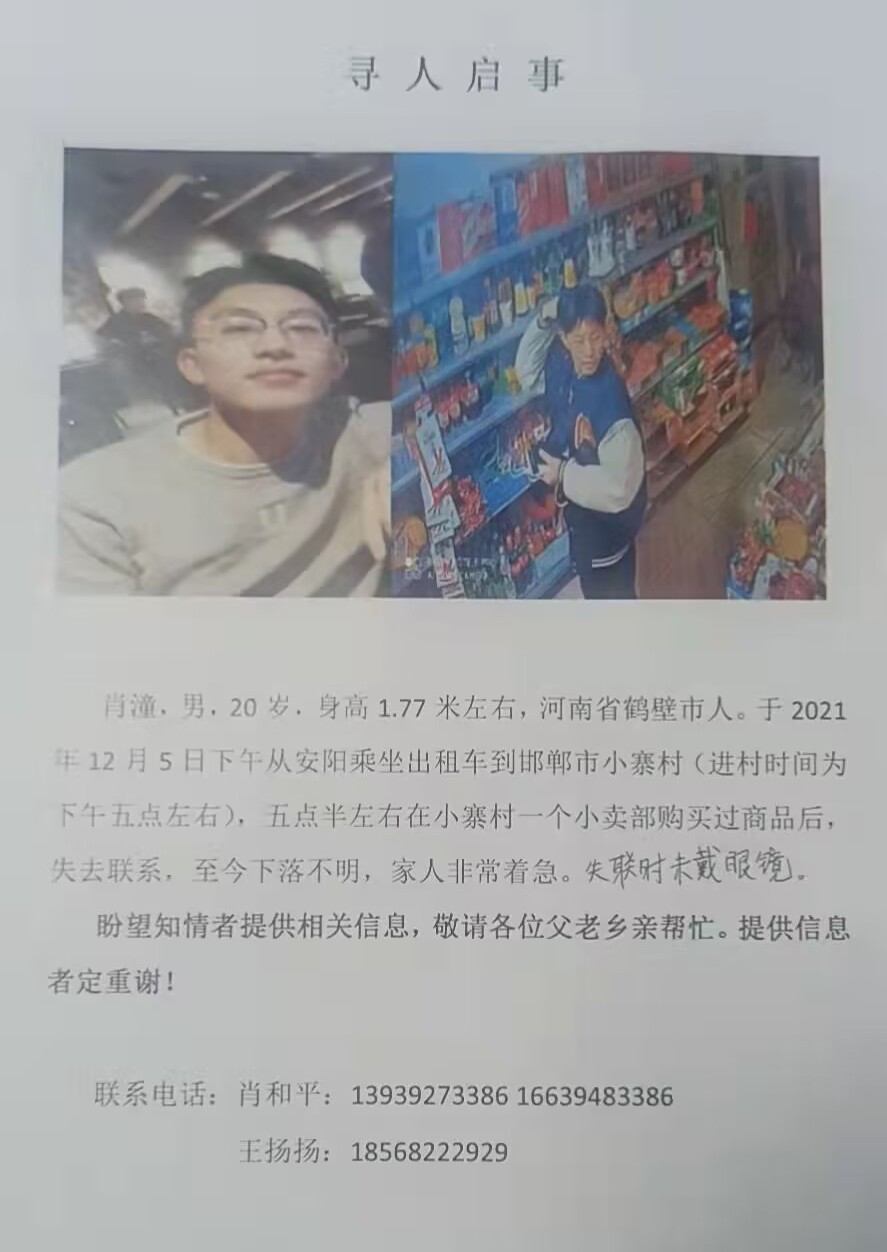 寻人启事
肖潼，男，20 岁，身高 1.77 米左右，河南省鹤壁市人。于 2021
年 12 月 5 日下午从安阳乘坐出租车到邯郸市小寨村（进村时间为
下午五点左右），五点半左右在小寨村一个小卖部购买过商品后，
失去联系，至今下落不明，家人非常着急。失联时未戴眼镜。
盼望知情者提供相关信息，敬请各位父老乡亲帮忙。提供信息
者定重谢！
联系电话：肖和平：13939273386 16639483386
王扬扬：18568222929